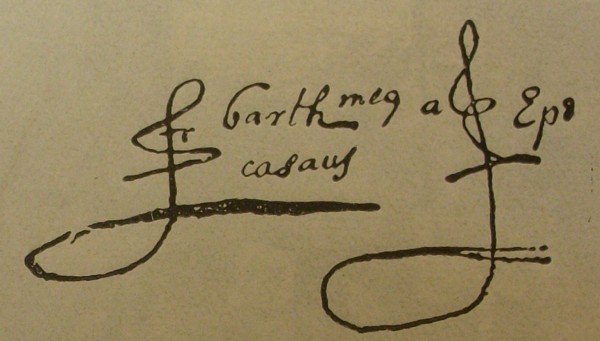 Fr barthmeg a Eps
casaus